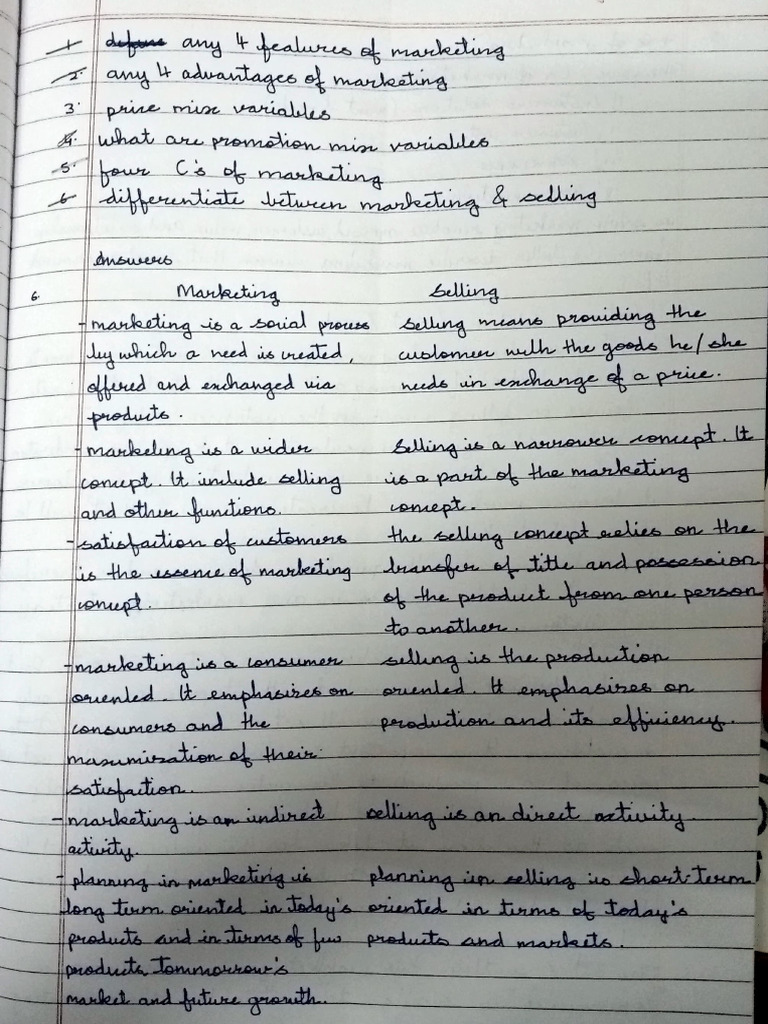 1. define any 4 features of marketing
2. any 4 advantages of marketing
3. price mix variables
4. what are promotion mix variables
5. four C's of marketing
6. differentiate between marketing & selling
Answers
6. Marketing Selling
- marketing is a social process selling means providing the
by which a need is created, customer with the goods he/she
offered and exchanged via needs in exchange of a price.
products.
- marketing is a wider selling is a narrower concept. It
concept. It include selling is a part of the marketing
and other functions. concept.
- satisfaction of customers the selling concept relies on the
is the essence of marketing transfer of title and possession
concept. of the product from one person
to another.
- marketing is a consumer selling is the production
oriented. It emphasizes on oriented. It emphasizes on
consumers and the production and its efficiency.
maximization of their
satisfaction.
- marketing is an indirect selling is an direct activity.
activity.
- planning in marketing is planning in selling is short-term
long term oriented in today's oriented in terms of today's
products and in terms of few products and markets.
products, tommorrow's
market and future growth.